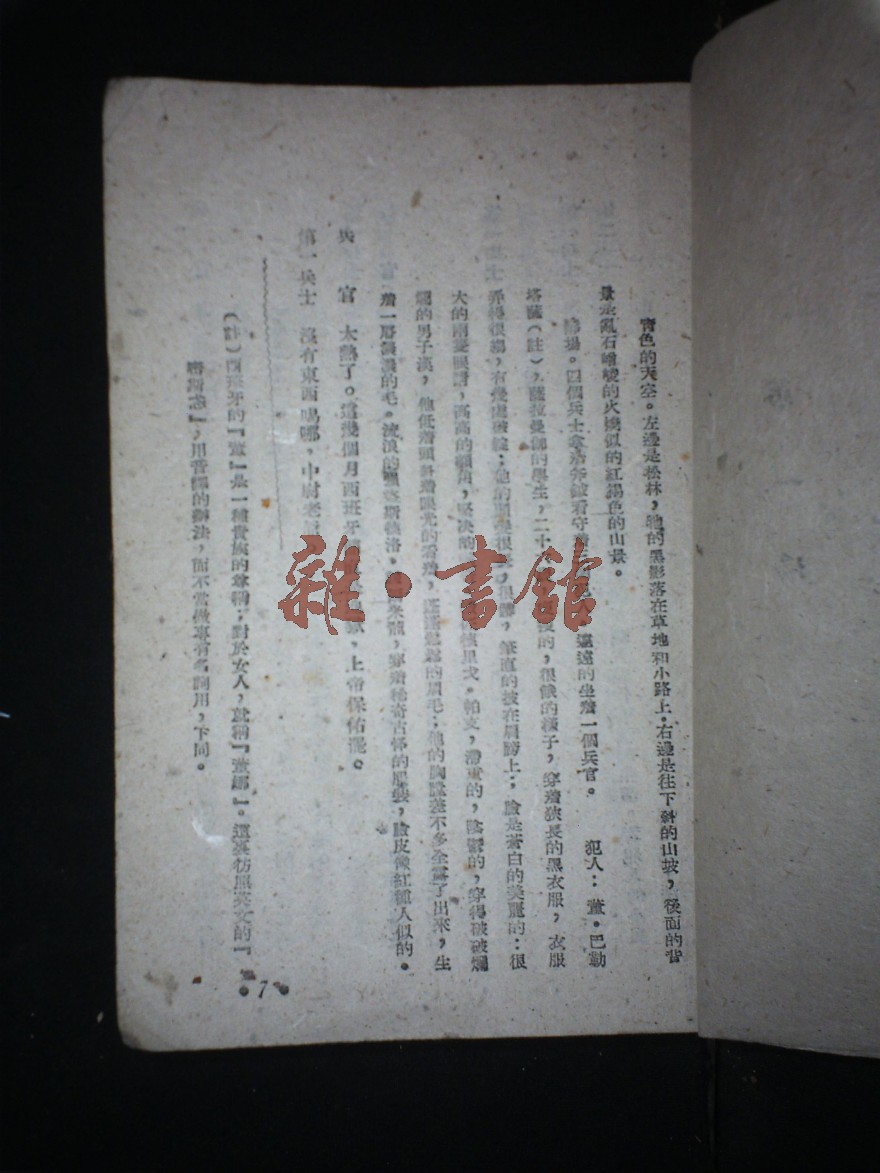 青色的天空。左邊是松林，牠的黑影落在草地和小路上。右邊是往下斜的山坡，後面的背
景是亂石嶒崚的火燒似的紅褐色的山景。
四個兵士拿着斧鉞看守着 遠遠的坐着一個兵官。 犯人：董·巴勒
塔薩（註），薩拉曼the的學生，二十 很 的樣子，穿着狹長的黑衣服，衣服
弄得很髒，有幾處破綻；他的頭髮很 筆直的披在肩膀上；臉是蒼白的美麗的：很
大的兩隻眼睛，高高的額角，堅決的 帕支，滯重的，陰鬱的，穿得破破爛
爛的男子漢，他低着頭斜着眼光的看着， 的眉毛；他的胸膛差不多全露了出來，生
着一層 的毛。流浪的 穿着稀奇古怪的服裝，臉皮像紅種人似的。
兵 官 太熱了。這幾個月西班牙 上帝保佑罷。
第一兵士 沒有東西喝哪，中尉老
（註）西班牙的『董』是一種貴族的尊稱；對於女人，就稱『董娜』。這裏仿照英文的『
』，用音譯的辦法，而不當做專有名詞用，下同。
·7·
雜·書館